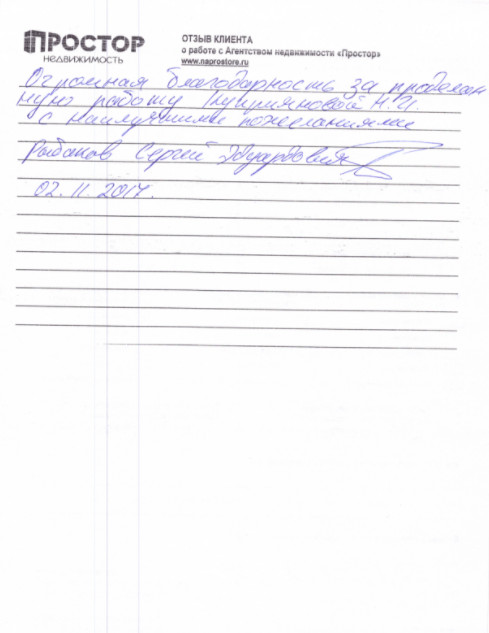 ПРОСТОР
НЕДВИЖИМОСТЬ
ОТЗЫВ КЛИЕНТА
о работе с Агентством недвижимости «Простор»
www.naprostore.ru
Огромная благодарность за проделан
ную работу Н.И.
с наилучшими пожеланиями
Рыбаков Сергей Эдуардович
02.11.2017.